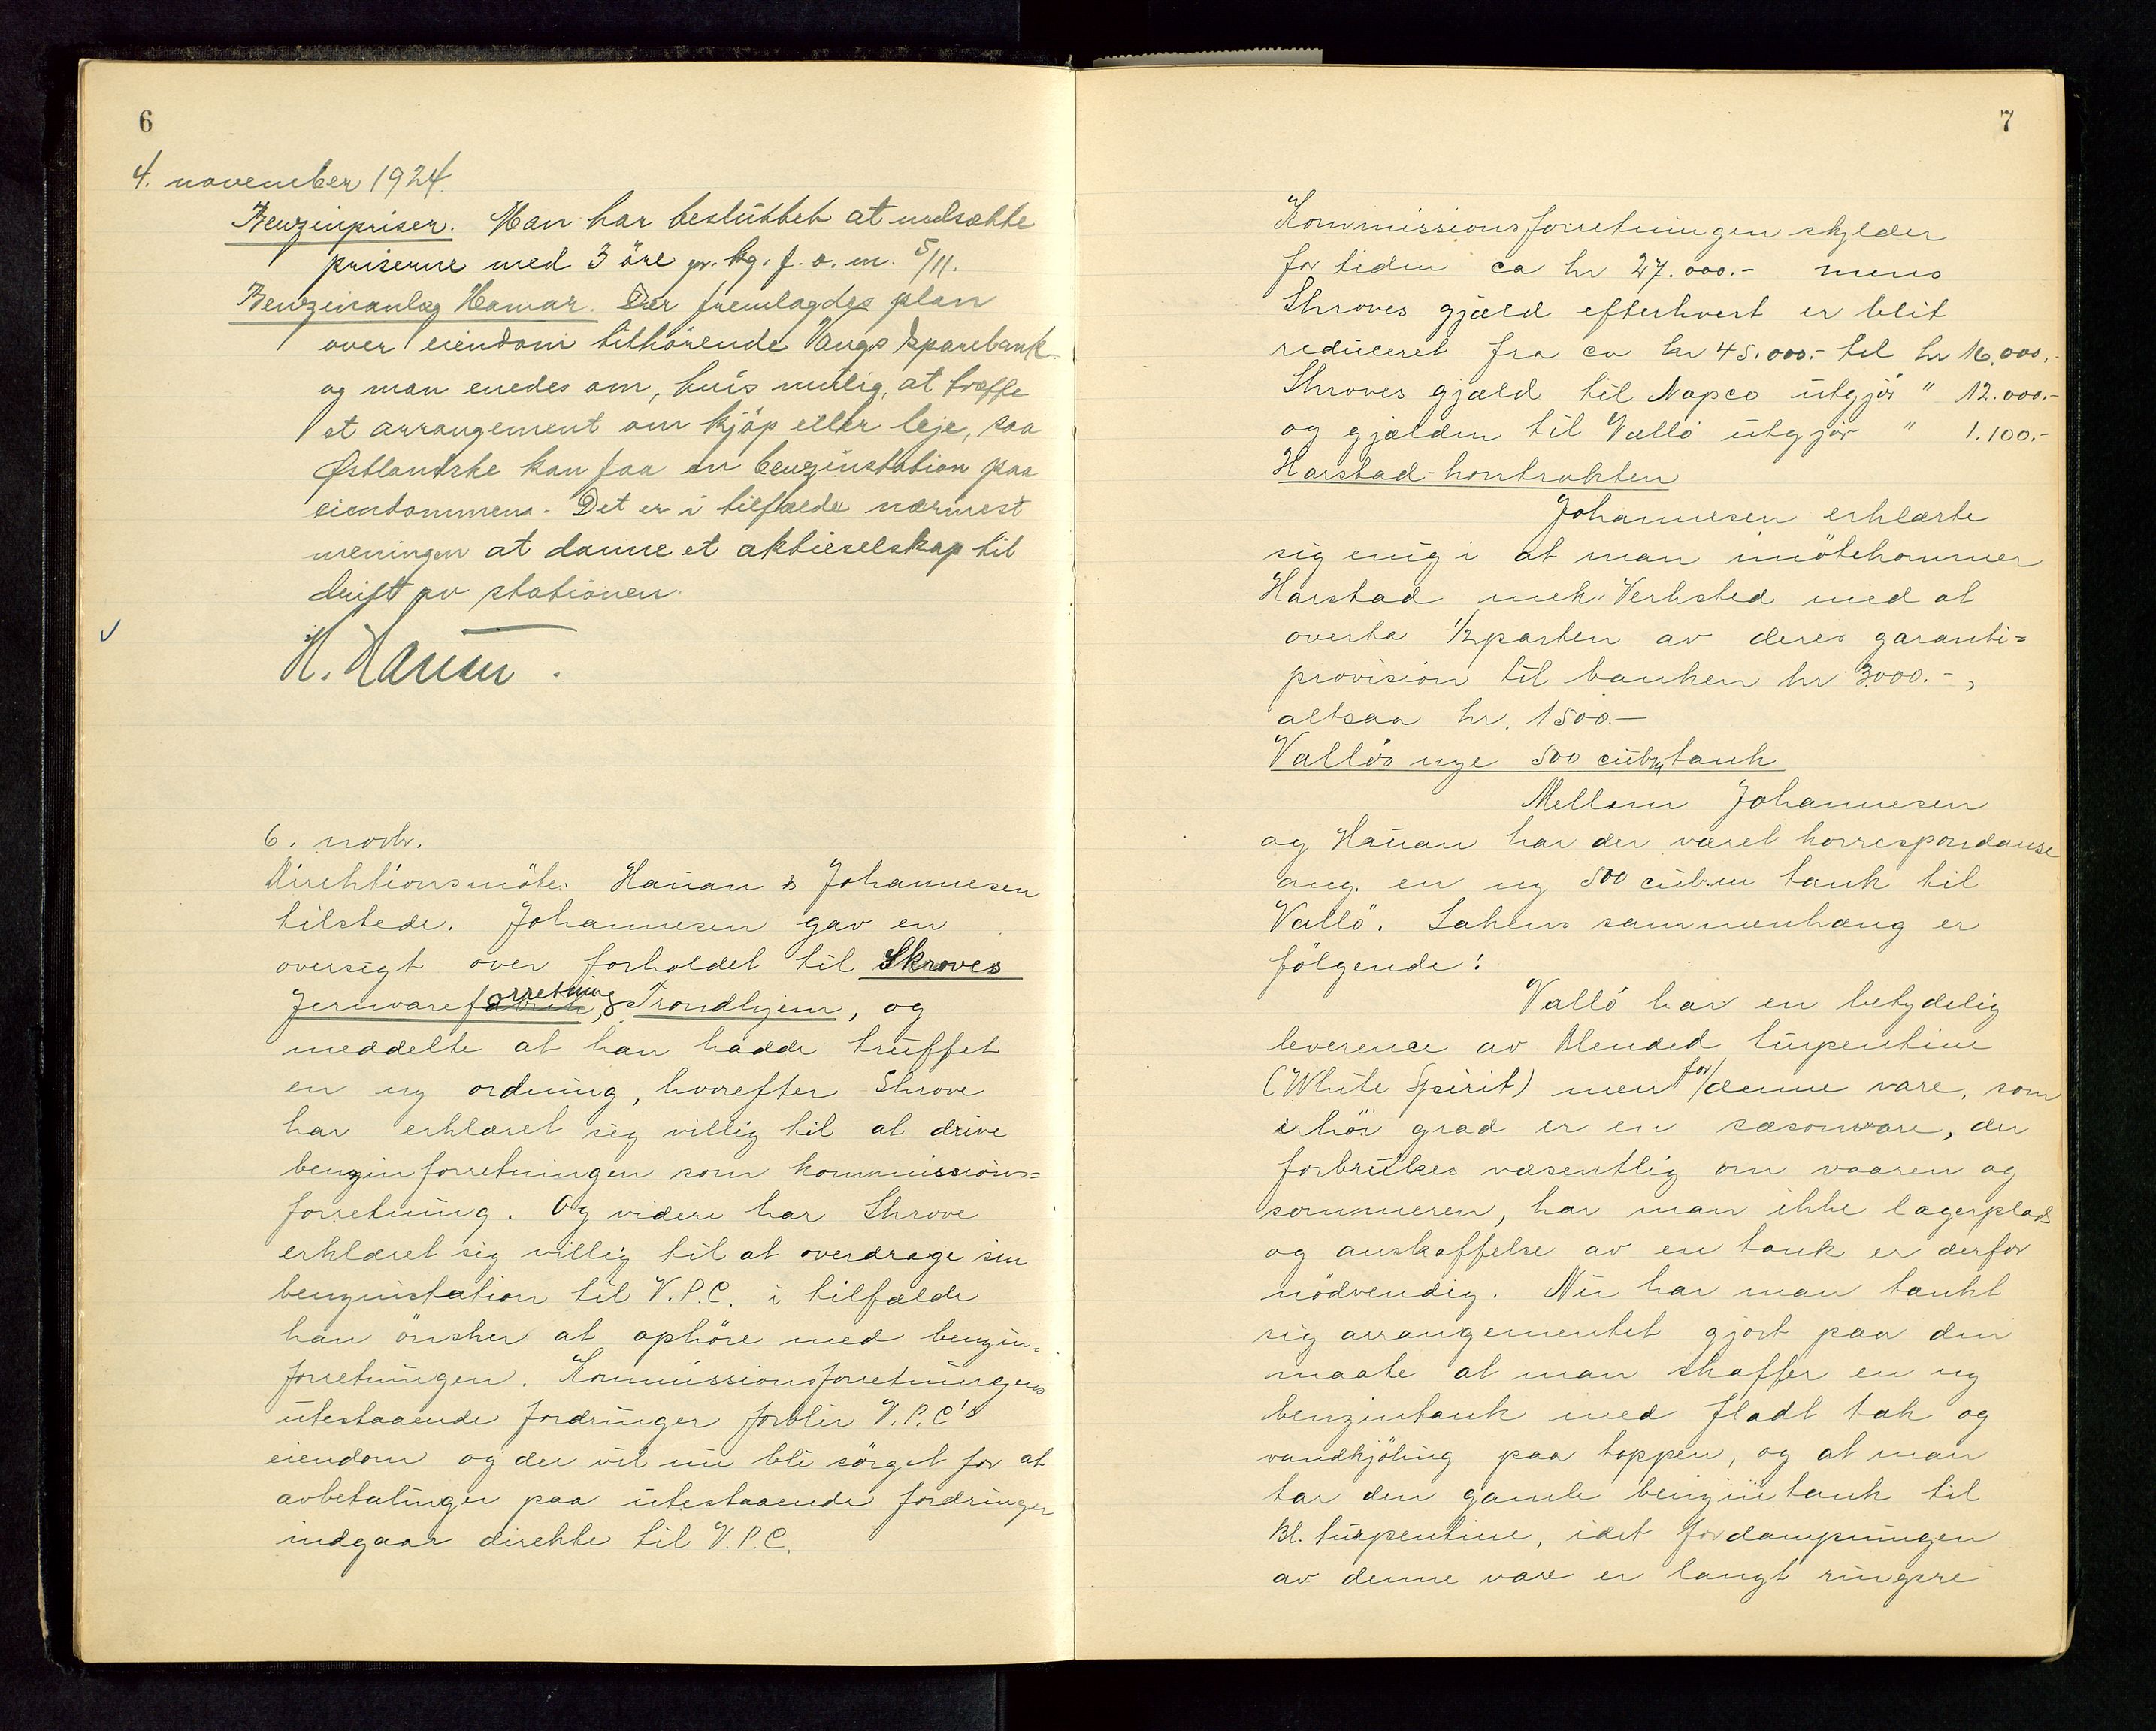 6
4. november 1924.
Benzinpriser. Man har besluttet at nedsætte
priserne med 3 öre pr. kg. f. o. m. 5/11.
Benzinanlæg Hamar. Der fremlagdes plan
over eiendom tilhörende Vangs Sparebank
og man enedes om, hvis mulig, at træffe
et arrangement om kjöp eller leje, saa
Østlandske kan faa en benzinstation paa
eiendommen. Det er i tilfælde nærmest
meningen at danne et aktieselskap til
drift av stationen.
H. Hauan.
6. novbr.
Direktionsmöte. Hauan & Johannesen
tilstede. Johannesen gav en
oversigt over forholdet til Skroves
Jernvareforretning, Trondhjem, og
meddelte at han hadde truffet
en ny ordning, hvorefter Skrove
har erklæret sig villig til at drive
benzinforretningen som kommissions=
forretning. Og videre har Skrove
erklæret sig villig til at overdrage sin
benzinstation til V.P.C. i tilfælde
han önsker at ophöre med benzin=
forretningen. Kommissionsforretningens
utestaaende fordringer forblir V.P.C's
eiendom og der vil nu bli sörget for at
avbetalinger paa utestaaende fordringer
indgaar direkte til V.P.C.
7
Kommissionsforretningen skylder
for tiden ca kr 27.000.- mens
Skroves gjæld efterhvert er blit
reduceret fra ca kr 45.000.- til kr 16.000.-
Skroves gjæld til Napco utgjör " 12.000.-
og gjælden til Vallö utgjör " 1.100.-
Harstad-kontrakten
Johannesen erklærte
sig enig i at man imötekommer
Harstad mek. Verksted med at
overta 1/2parten av deres garanti=
provision til banken kr 3.000.-,
altsaa kr. 1500.-
Vallös nye 500 cubm tank
Mellem Johannesen
og Hauan har der været korrespondanse
ang. en ny 500 cub.m tank til
Vallö. Sakens sammenhæng er
fölgende:
Vallö har en betydelig
leverence av Blended turpentine
(White Spirit) men for denne vare, som
i höi grad er en sæsonvare, der
forbrukes væsentlig om vaaren og
sommeren, har man ikke lagerplads
og anskaffelse av en tank er derfor
nödvendig. Nu har man tænkt
sig arrangementet gjort paa den
maate at man skaffer en ny
benzintank med fladt tak og
vandkjöling paa toppen, og at man
tar den gamle benzintank til
Bl. turpentine, idet fordampningen
av denne vare er langt ringere